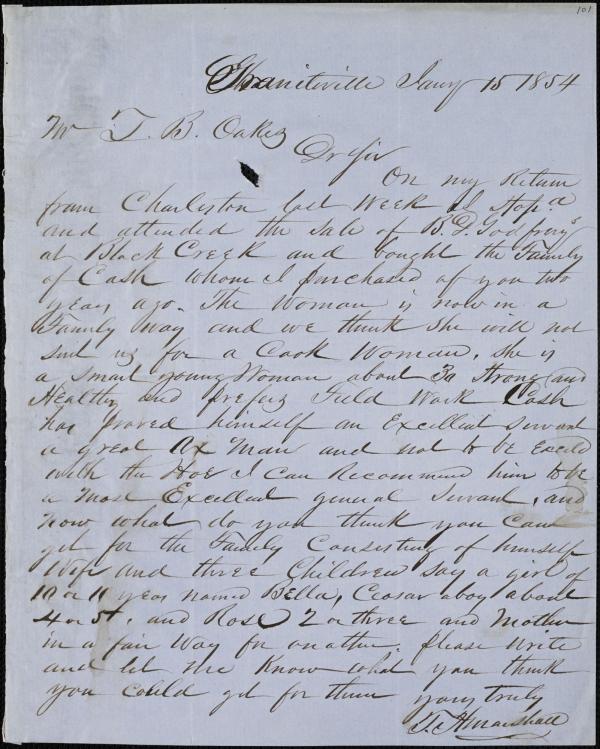 101
Graniteville Jany 15 1854
Mr Z. B. Oakes
Dr Sir
On my Return
from Charleston last Week I stopd
and attended the sale of B. D. Godfreys
at Black Creek and bought the Family
of Cash whom I purchased of you two
years ago. The Woman is now in a
Family way and we think she will not
suit us for a Cook Woman. She is
a smart young Woman about 30 Strong and
Healthy and prefers Field Work Cash
has proved himself an Excellent Servant
a great Ax Man and not to be Exceld
with the Hoe I can Recommend him to be
a Most Excellent general Servant, and
Now what do you think you can
get for the Family Consisting of himself
Wife and three Children Say a girl of
10 or 11 years named Bella, Ceasar a boy about
4 or 5, and Rose 2 or three and Mother
in a fair Way for another. please Write
and let me Know what you think
you could get for them yours truly
J. Hmarshall